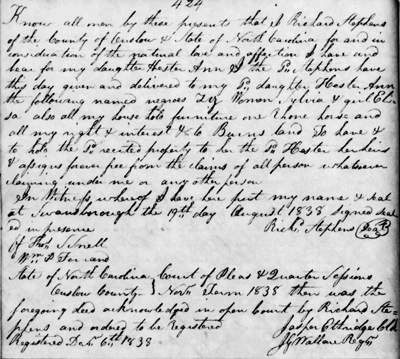 424
Know all men by these presents that I Richard Stephens
of the County of Onslow & State of North Carolina for and in
consideration of the natural love and affection I have and
bear for my daughter Hester Ann I the Sd Stephens have
this day given and delivered to my Sd daughter Hester Ann
the following named negroes Woman Sylvia & girl
also all my house hold furniture one horse and
all my right & interest to Burns land To have &
to hold the Sd recited property to her the Sd Hester her heirs
& assigns forever free from the claims of all person whatsoever
claiming under me or any other person
In Witness whereof I have here put my name & seal
at Swansborough the 19th day August 1838 Signed Seal
ed in presence Richd Stephens Seal
of Thos S Snell
Wm P Ferrand
State of North Carolina Court of Pleas & Quarter Sessions
Onslow County Novr Term 1838 then was the
foregoing deed acknowledged in open court by Richard Ste-
phens and ordered to be registered
Jasper Etheridge Clk
Registered Decr 6th 1838 Wallace Regr